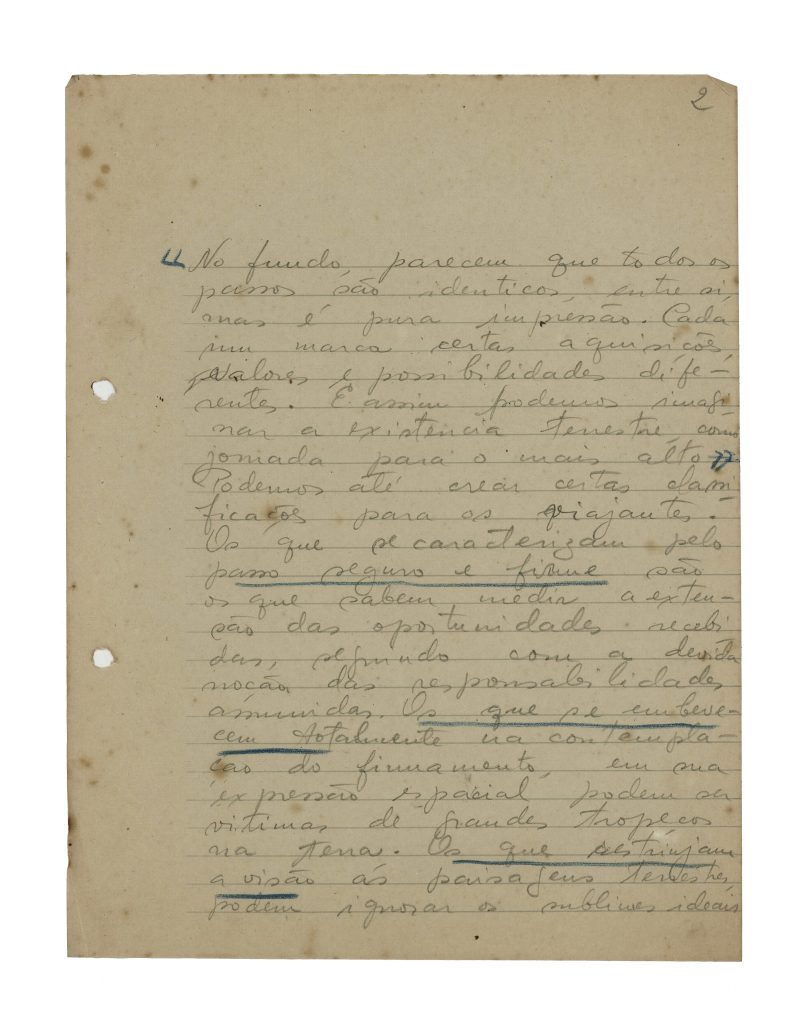 2
"No fundo, parecem que todos os
passos são identicos, entre si,
mas é pura impressão. Cada
um marca certas aquisições,
valores e possibilidades dife-
rentes. E assim podemos imagi
nar a existencia terrestre, como
jornada para o mais alto"
Podemos até crear certas classi
ficações para os viajantes.
Os que se caracterizam pelo
passo seguro e firme são
os que sabem medir a exten-
são das oportunidades recebi
das, seguindo com a devida
noção das responsabilidades
assumidas. Os que se embeve-
cem totalmente na contempla-
ção do firmamento, em sua
expressão espacial podem ser
vitimas de grandes tropeços
na terra. Os que restrinjam
a visão ás paisagens terrestres,
podem ignorar os sublimes ideais